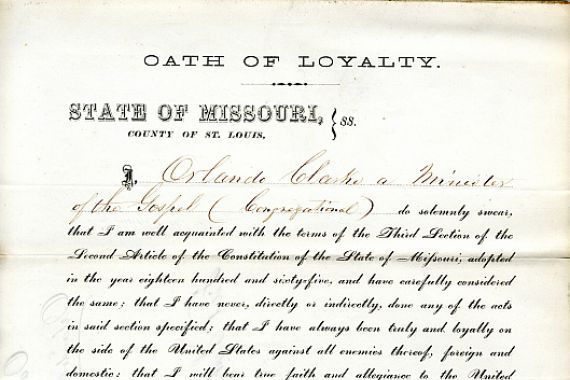 OATH OF LOYALTY.
STATE OF MISSOURI, } ss.
COUNTY OF ST. LOUIS,
I, Orlando Clarke a Minister
of the Gospel (Congregational) do solemnly swear,
that I am well acquainted with the terms of the Third Section of the
Second Article of the Constitution of the State of Mifsouri, adopted
in the year eighteen hundred and sixty-five, and have carefully considered
the same; that I have never, directly or indirectly, done any of the acts
in said section specified; that I have always been truly and loyally on
the side of the United States against all enemies thereof, foreign and
domestic; that I will bear true faith and allegiance to the United